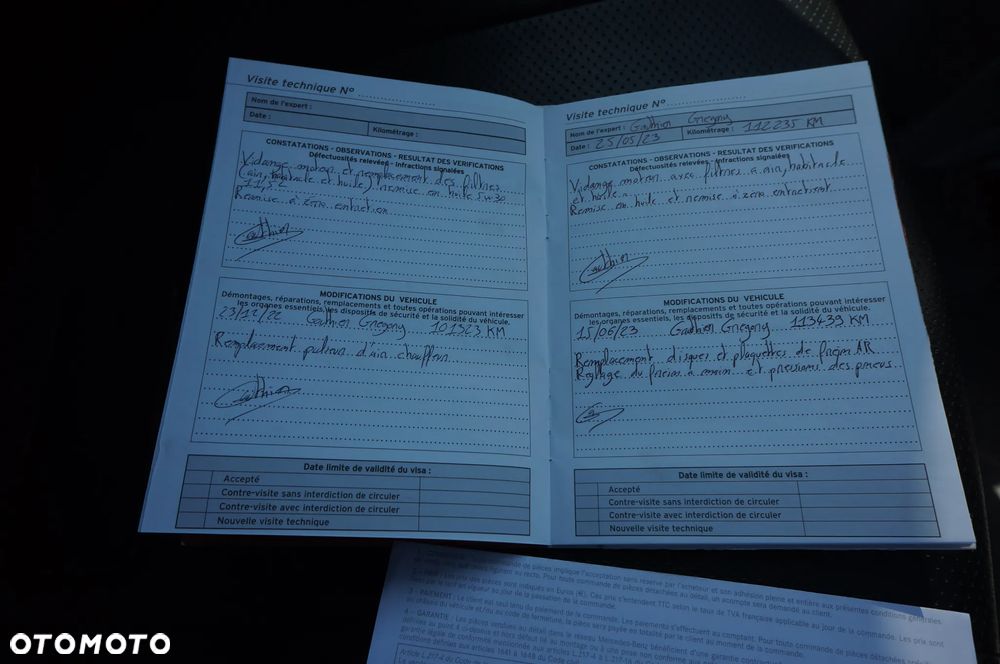 Visite technique Nº
Nom de l'expert :
Date :
Kilométrage :
CONSTATATIONS - OBSERVATIONS - RESULTAT DES VERIFICATIONS
Défectuosités relevées - Infractions signalées
Vidange moteur et remplacement des filtres
(air, habitacle et huile) remise en huile 5w30
11,5L
Remise à zéro entretien
Gauthier
MODIFICATIONS DU VEHICULE
Démontages, réparations, remplacements et toutes opérations pouvant intéresser
les organes essentiels, les dispositifs de sécurité et la solidité du véhicule.
23/12/22 Gauthier Gregory 101323 KM
Remplacement pulseur d'air chauffeur
Gauthier
Date limite de validité du visa :
Accepté
Contre-visite sans interdiction de circuler
Contre-visite avec interdiction de circuler
Nouvelle visite technique
Visite technique Nº
Nom de l'expert : Gauthier Gregory
Date : 25/05/23
Kilométrage : 112235 KM
CONSTATATIONS - OBSERVATIONS - RESULTAT DES VERIFICATIONS
Défectuosités relevées - Infractions signalées
Vidange moteur avec filtres a air, habitacle
et huile.
Remise en huile et remise à zéro entretient
Gauthier
MODIFICATIONS DU VEHICULE
Démontages, réparations, remplacements et toutes opérations pouvant intéresser
les organes essentiels, les dispositifs de sécurité et la solidité du véhicule.
15/06/23 Gauthier Gregory 113433 KM
Remplacement disques et plaquettes de frein AR
Réglage du frein a main et pressions des pneus
Date limite de validité du visa :
Accepté
Contre-visite sans interdiction de circuler
Contre-visite avec interdiction de circuler
Nouvelle visite technique
3 - PAIEMENT : Le client est seul tenu du paiement de la commande. Les paiements s'effectuent au comptant. Pour toute commande de pièces détachées
4 - GARANTIE : Les pièces vendues au détail dans le réseau Mercedes-Benz bénéficient d'une garantie
OTOMOTO